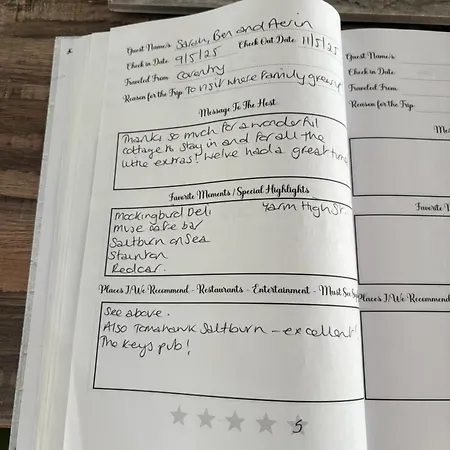 Guest Name/s Sarah, Ben and Aerin
Check in Date 9/5/25 Check Out Date 11/5/25
Traveled From Coventry
Reason for the Trip To visit where family grew up
Message To The Host
Thanks so much for a wonderful
cottage to stay in and for all the
little extras! We've had a great time
Favorite Moments / Special Highlights
Mockingbird Deli Yarm High St.
Muse cafe bar
Saltburn on Sea
Stainton
Redcar.
Places I/We Recommend - Restaurants - Entertainment - Must See
See above.
Also Tomahawk Saltburn - excellent!
The Keys pub!
5
Guest Name/s
Check in Date
Traveled From
Reason for the Trip
Places I/We Recommend